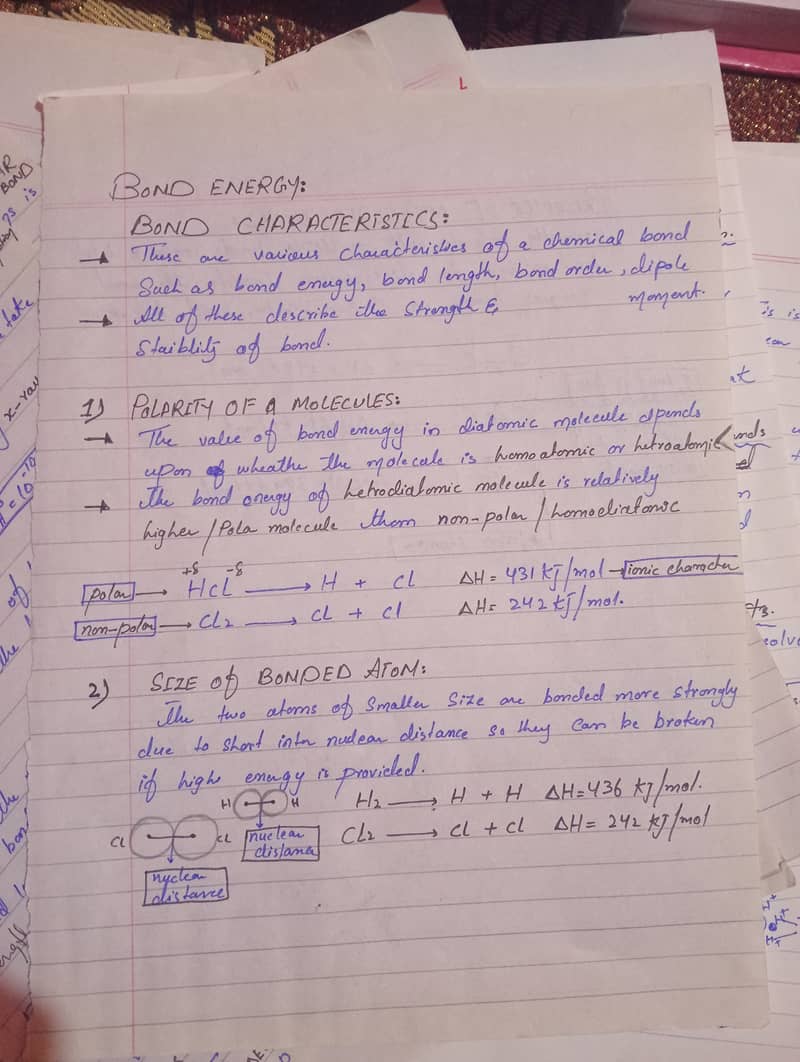 L
BOND ENERGY:
BOND CHARACTERISTICS:
→ These are various characteristics of a chemical bond
Such as bond energy, bond length, bond order, dipole
moment.
→ All of these describe the Strength &
Staiblity of bond.
1) POLARITY OF A MOLECULES:
→ The value of bond energy in diatomic molecule dpends
upon of wheathe the molecule is homoatomic or hetroatomic
→ The bond energy of hetrodiatomic molecule is relatively
higher / Pola molecule them non-polar / homodiatomic
+δ -δ
polar → HCl → H + Cl ΔH = 431 kJ/mol → ionic character
non-polar → Cl2 → Cl + Cl ΔH = 242 kJ/mol.
2) SIZE of BONDED ATOM:
The two atoms of Smaller Size are bonded more strongly
due to short inter nuclear distance so they can be broken
if high energy is provided.
H H H2 → H + H ΔH=436 kJ/mol.
Cl Cl nuclear distance Cl2 → Cl + Cl ΔH = 242 kJ/mol
nuclear
distance